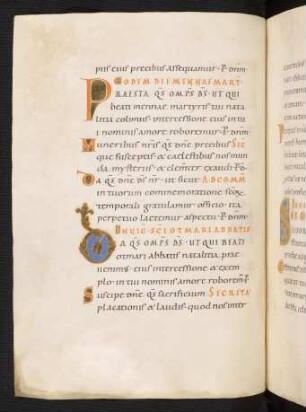 piis eius precibus assequamur. P. dnm.
EODEM DIE MENNAE MART
PRAESTA. QS OMPS DS. UT QUI
beati mennae martyris tui nata
litia colimus. intercessione eius in tu
i nominis amore roboremur. P. dnm
Muneribus nris qs dne. precibus SIC
que susceptis. et caelestibus nos mun
da mysteriis. et clementer exaudi. P.
Da qs dne ds nr. ut sicut AD COMM
in tuorum commemoratione scorum
temporali gratulamur officio. ita
perpetuo laetemur aspectu. P. dnm
IN NAT SCI OTMARI ABBATIS
DA QS OMPS DS. UT QUI BEATI
otmari abbatis natalitia prae
uenimus. eius intercessione et exem
plo. in tui nominis amore roboremur.
Suscipe dne. qs sacrificium SECRETA
placationis et laudis. quod nos inter